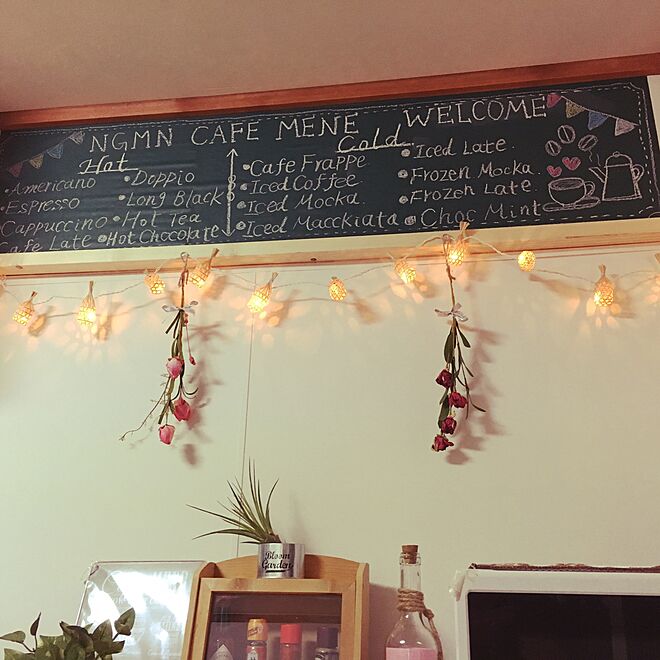 NGMN CAFE MENE
WELCOME
Hot
• Americano
• Espresso
Cappuccino
Cafe Late
• Doppio
• Long Black
• Hot Tea
• Hot Chocolate
Cold
• Cafe Frappe
• Iced Coffee
• Iced Mocka
• Iced Macckiata
• Iced Late.
• Frozen Mocka.
• Frozen Late.
• Choc Mint
Bloom
Garden